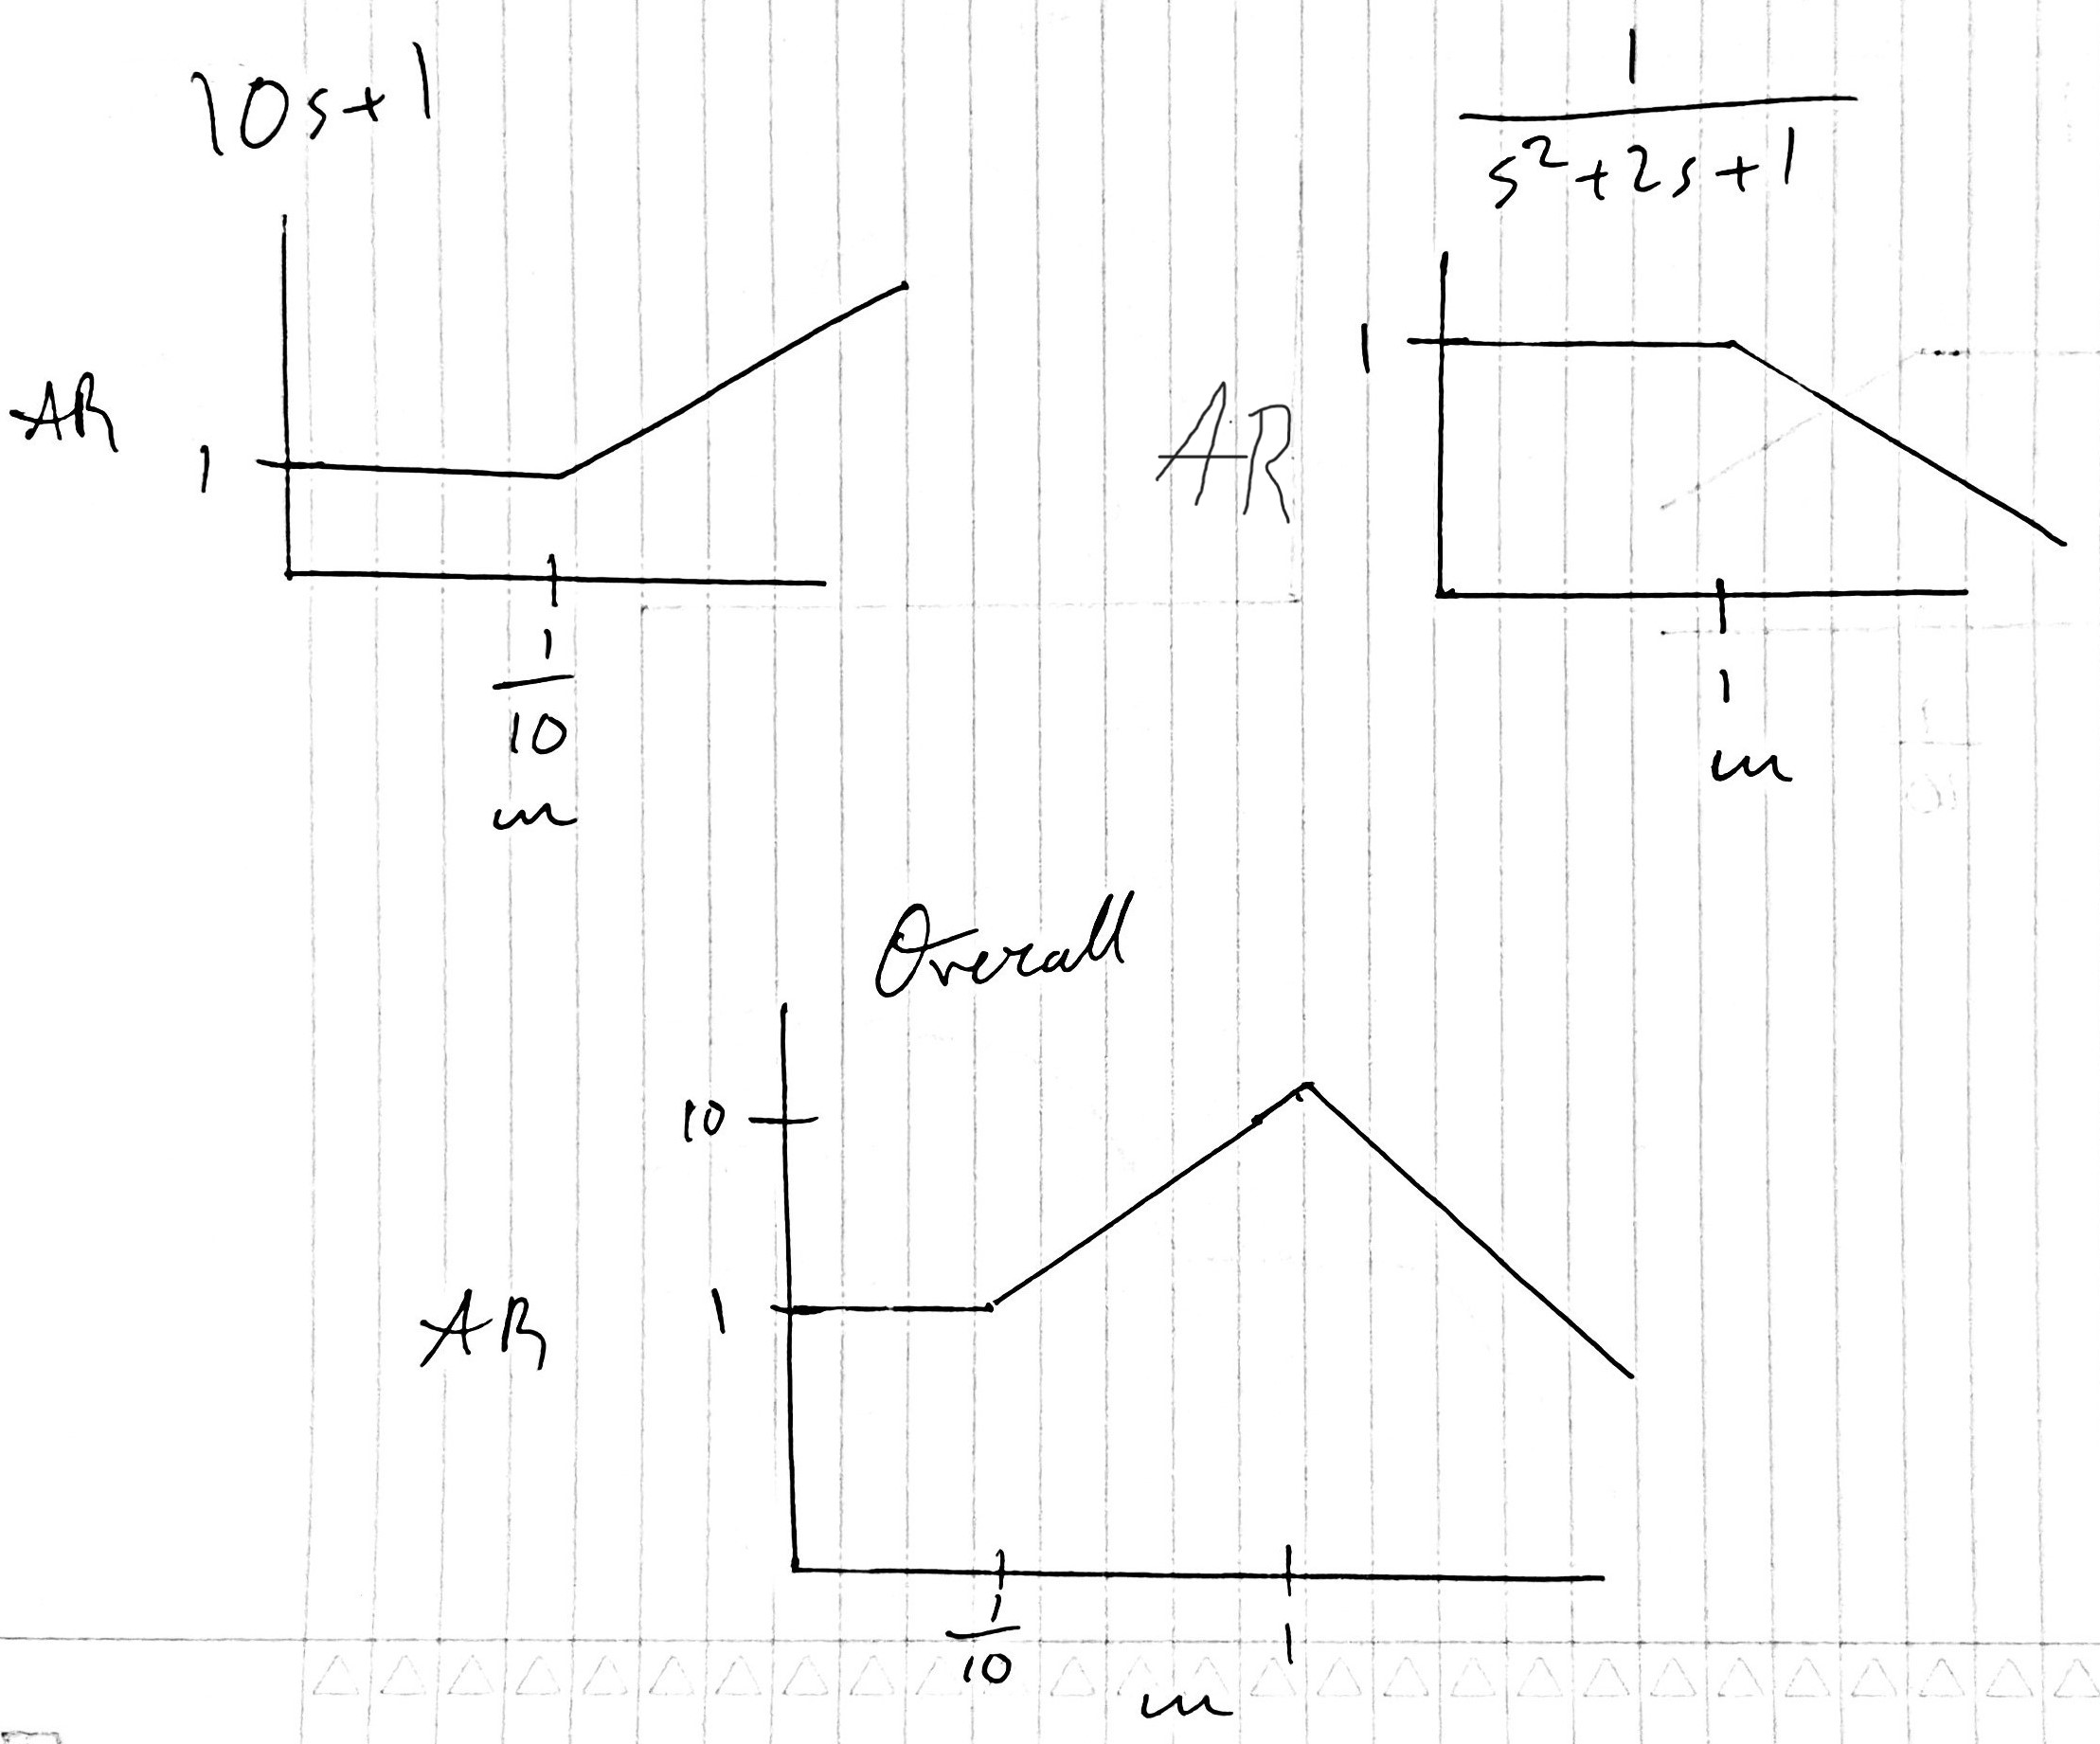 10s+1
AR
1
1
10
ω
1
s²+2s+1
1
AR
1
ω
Overall
10
AR
1
1
10
1
ω